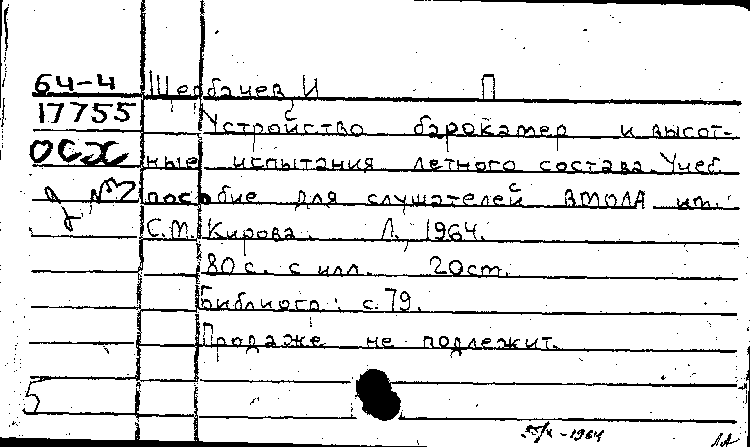 64-4 Щербачев, И П
17755 Устройство барокамер и высот-
ОСХ ные испытания летного состава. Учеб.
пособие для слушателей ВМОЛА им.
С.М. Кирова. Л., 1964.
80 с. с илл. 20 см.
Библиогр.: с. 79.
Продаже не подлежит.
5